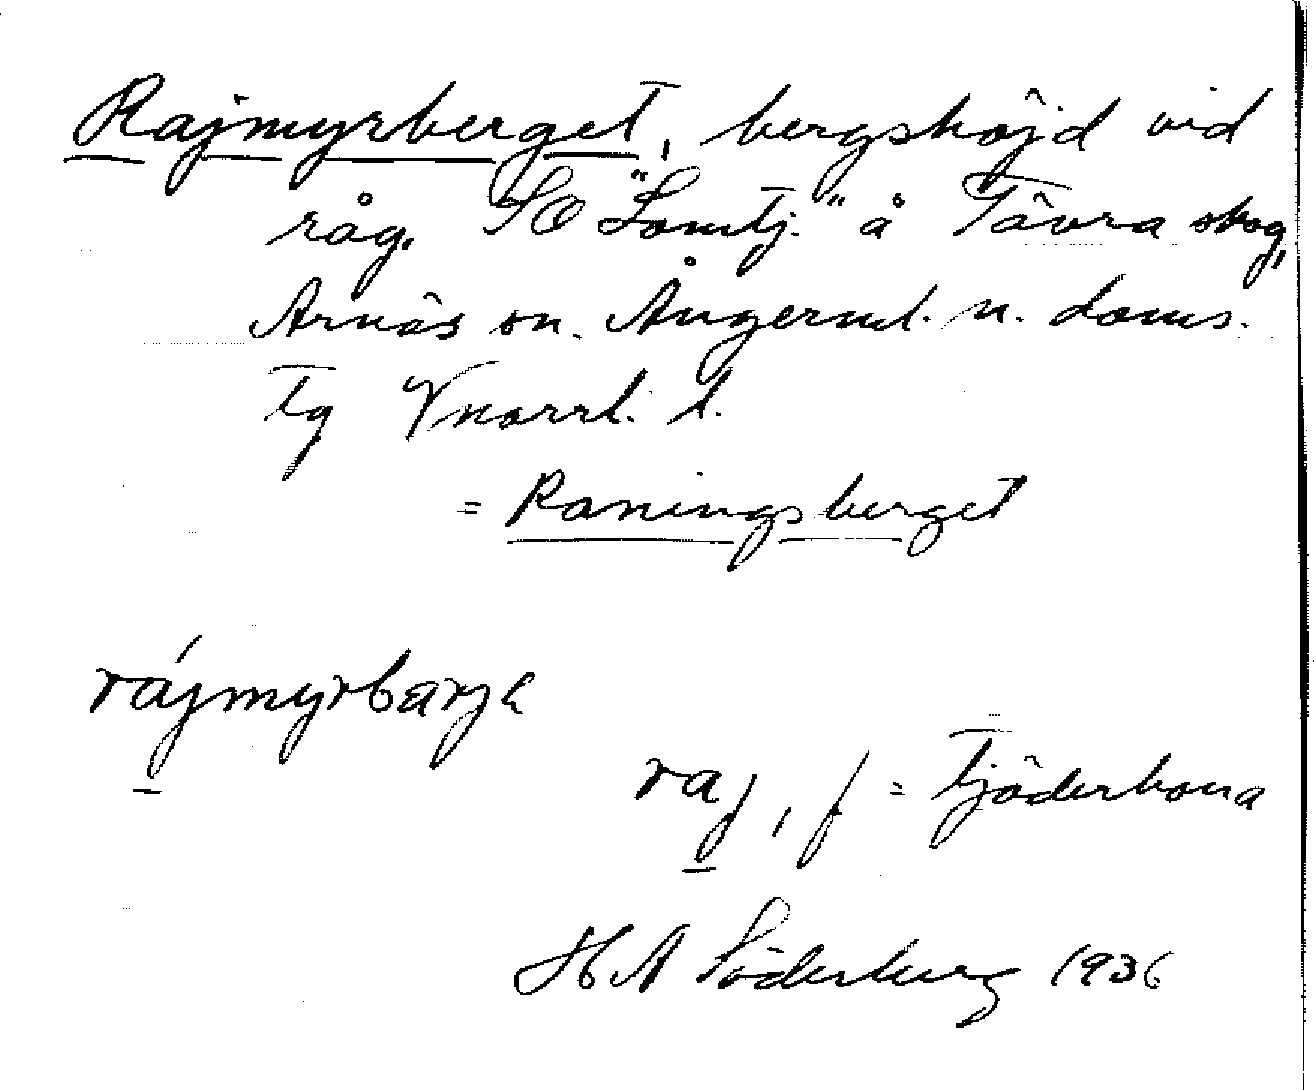 Rajmyrberget, bergshöjd vid
råg. SO "Lomtj." å Tävra skog,
Arnäs sn. Ångerml. n. doms.
tg Vnorrl. l.
= Raningsberget
rájmyrbärjε
raj, f = tjäderhona
H A Söderberg 1936